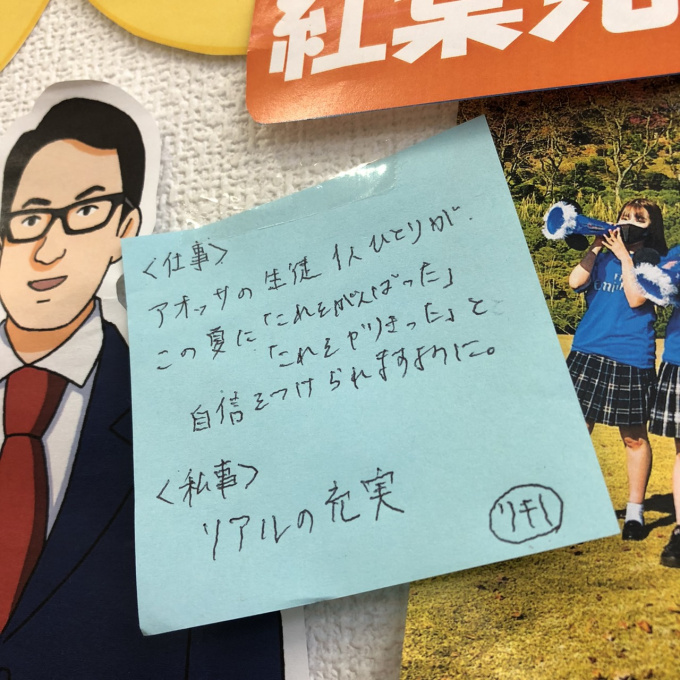 紅葉
<仕事>
アオッサの生徒1人ひとりが、
この夏に「これをがんばった」
「これをやりきった」と
自信をつけられますように。
<私事>
リアルの充実